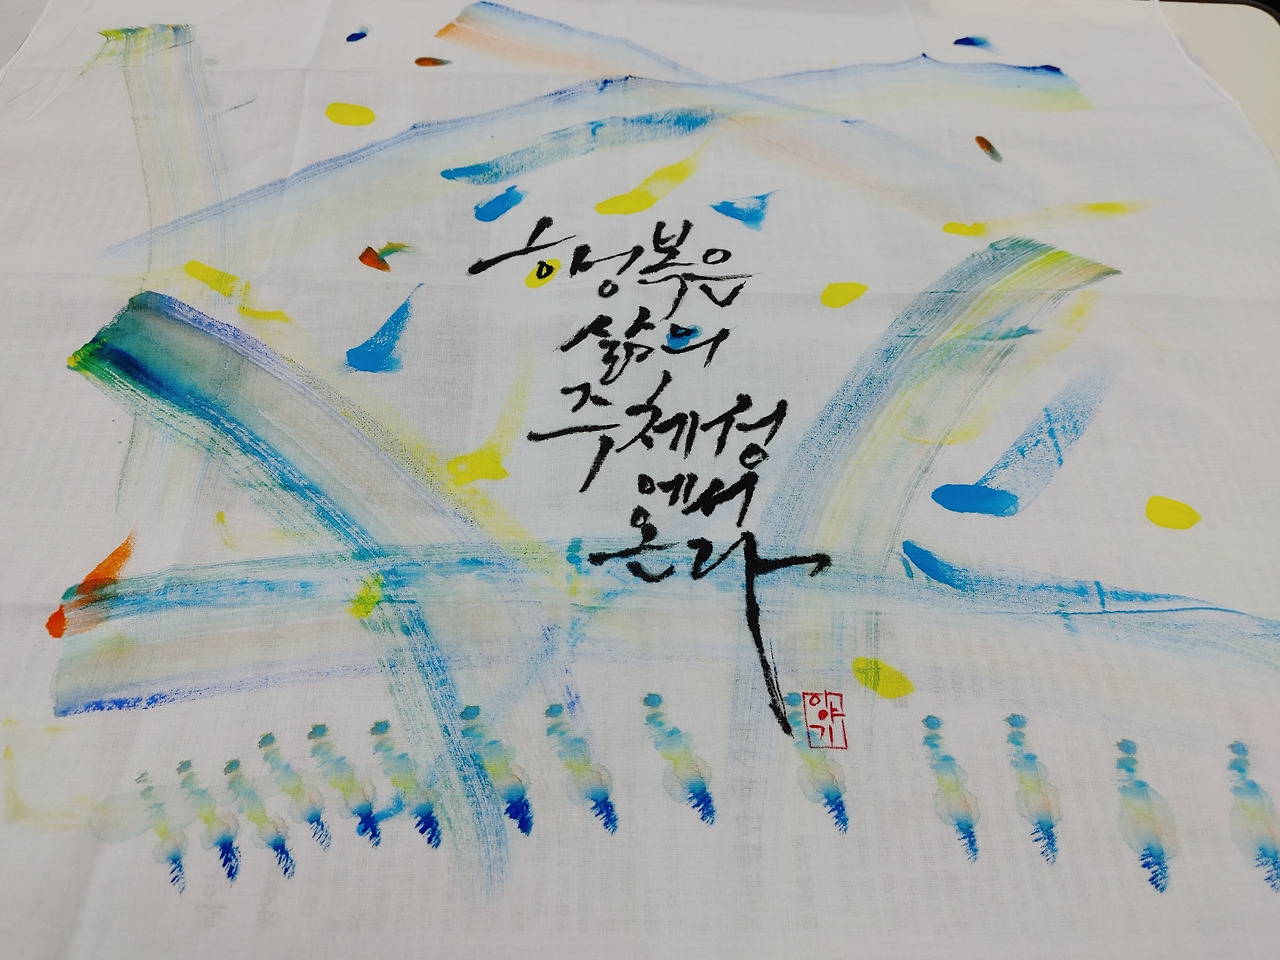 행복은
삶의
주체성
에서
온다
이야기